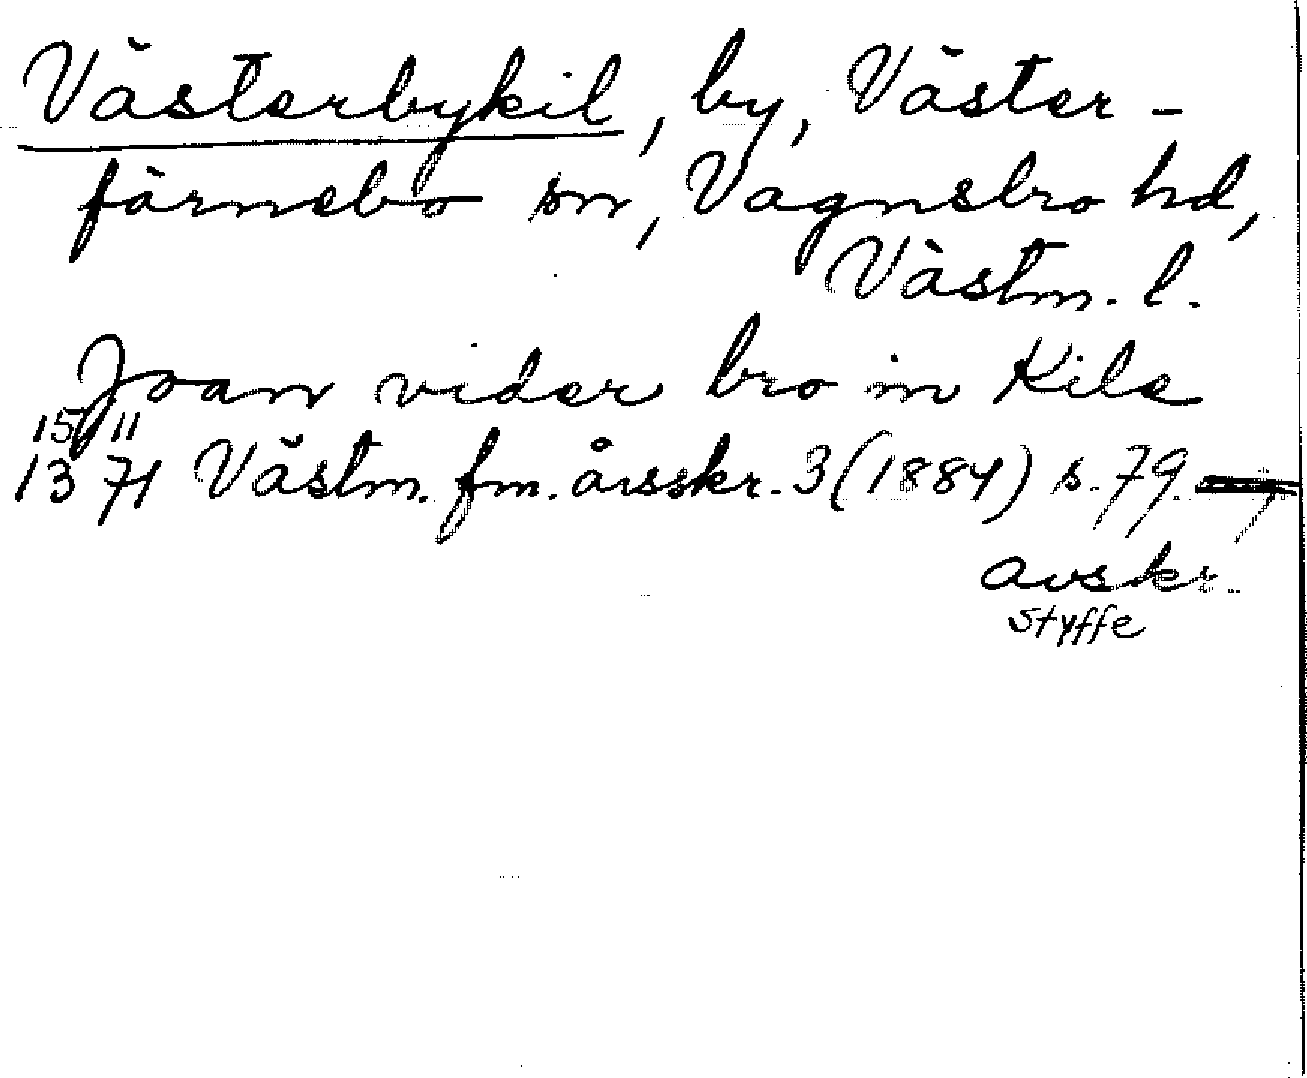 Västerbykil, by, Väster-
färnebo sn, Vagnsbro hd,
Västm. l.
Joan vider bro in Kile
15/11
1371 Västm. fm. årsskr. 3 (1884) s. 79
avskr.
Styffe